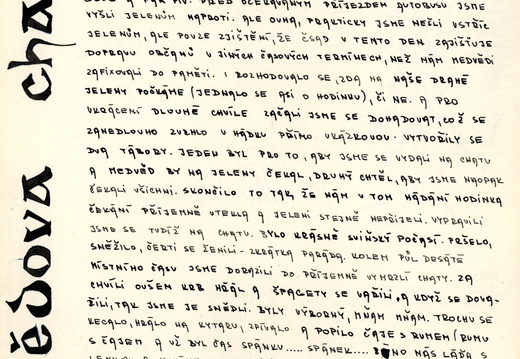 VYŠLI JELENŮM NAPROTI. ALE OUHA, PRAKTICKY JSME NEŠLI VSTŘÍC
JELENŮM, ALE POUZE ZJIŠTĚNÍ, ŽE ČSAD V TENTO DEN ZAJIŠŤUJE
DOPRAVU OBČANŮ V JINÝCH ČASOVÝCH TERMÍNECH, NEŽ NÁM MEDVĚDI
ZAFIXOVALI DO PAMĚTI. I ROZHODOVALO SE, ZDA NA NAŠE DRAHÉ
JELENY POČKÁME (JEDNALO SE ASI O HODINKU), ČI NE. A PRO
UKRÁCENÍ DLOUHÉ CHVÍLE ZAČALI JSME SE DOHADOVAT, COŽ SE
ZANEDLOUHO ZVRHLO V HÁDKU PŘÍMO UKÁZKOVOU. VYTVOŘILY SE
DVA TÁBORY. JEDEN BYL PRO TO, ABY JSME SE VYDALI NA CHATU
A MEDVĚD BY NA JELENY ČEKAL, DRUHÝ CHTĚL, ABY JSME NAOPAK
ČEKALI VŠICHNI. SKONČILO TO TAK, ŽE NÁM V TOM HÁDÁNÍ HODINKA
ČEKÁNÍ PŘÍJEMNĚ UTEKLA A JELENI STEJNĚ NEPŘIJELI. VYPRAVILI
JSME SE TUDÍŽ NA CHATU. BYLO KRÁSNÉ SVIŇSKÝ POČASÍ. PRŠELO,
SNĚŽILO, ČERTI SE ŽENILI - ZKRÁTKA PARÁDA. KOLEM PŮL DESÁTÉ
MÍSTNÍHO ČASU JSME DORAZILI DO PŘÍJEMNĚ VYMRZLÍ CHATY. ZA
CHVÍLI OUŠEM KRB HŘÁL A ŠPAGETY SE VAŘILI, A KDYŽ SE DOVA-
ŘILI, TAK JSME JE SNĚDLI. BYLY VÝBORNÝ, MŇAM MŇAM. TROCHU SE
KECALO, HRÁLO NA KYTARU, ZPÍVALO A POPILO ČAJE S RUMEM (RUMU
S ČAJEM A UŽ BYL ČAS SPÁNKU..... SPÁNEL.... RÁNO NÁS LÁĎA S
ědova cha